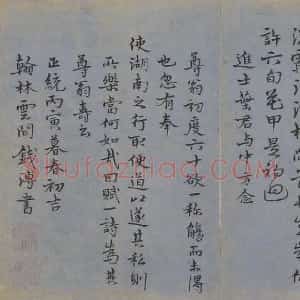 許六旬花甲是初週
進士葉君与中方念
尊翁初度六十欲一稱觴而未偶
也忽有奉
使湖南之行取便道以遂其私則
所樂當何如哉因賦一詩為其
尊翁壽云
正統丙寅暮春初吉
翰林雲間錢溥書
Shufaziliao.com